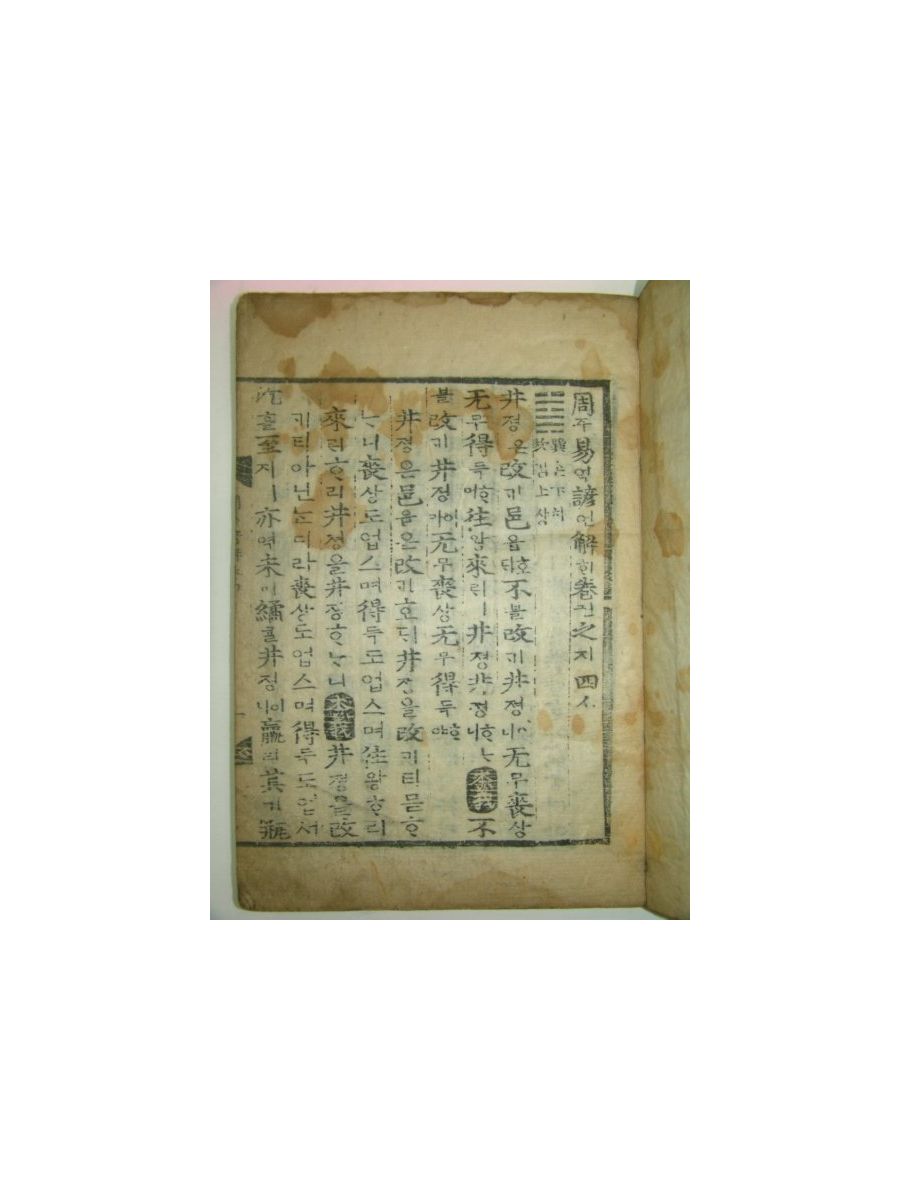 周쥬易역諺언解ᄒᆡ卷권之지四ᄉᆞ
䷯ 巽손下하
坎감上상
井졍은改ᄀᆡ邑읍호ᄃᆡ不블改ᄀᆡ井졍이니无무喪상
无무得득ᄒᆞ며往왕來ᄅᆡㅣ井졍井졍ᄒᆞᄂᆞ니本義不
블改ᄀᆡ井졍이라无무喪상无무得득ᄒᆞ야
井졍은邑읍은改ᄀᆡ호ᄃᆡ井졍을改ᄀᆡ티몯ᄒᆞ
ᄂᆞ니喪상도업스며得득도업스며往왕ᄒᆞ리
來ᄅᆡᄒᆞ리井졍을井졍ᄒᆞᄂᆞ니本義井졍을改
ᄀᆡ티아닌ᄂᆞᆫ디라喪상도업스며得득도업서
汔흘至지ㅣ亦역未미繘귤井졍이니羸리其기甁